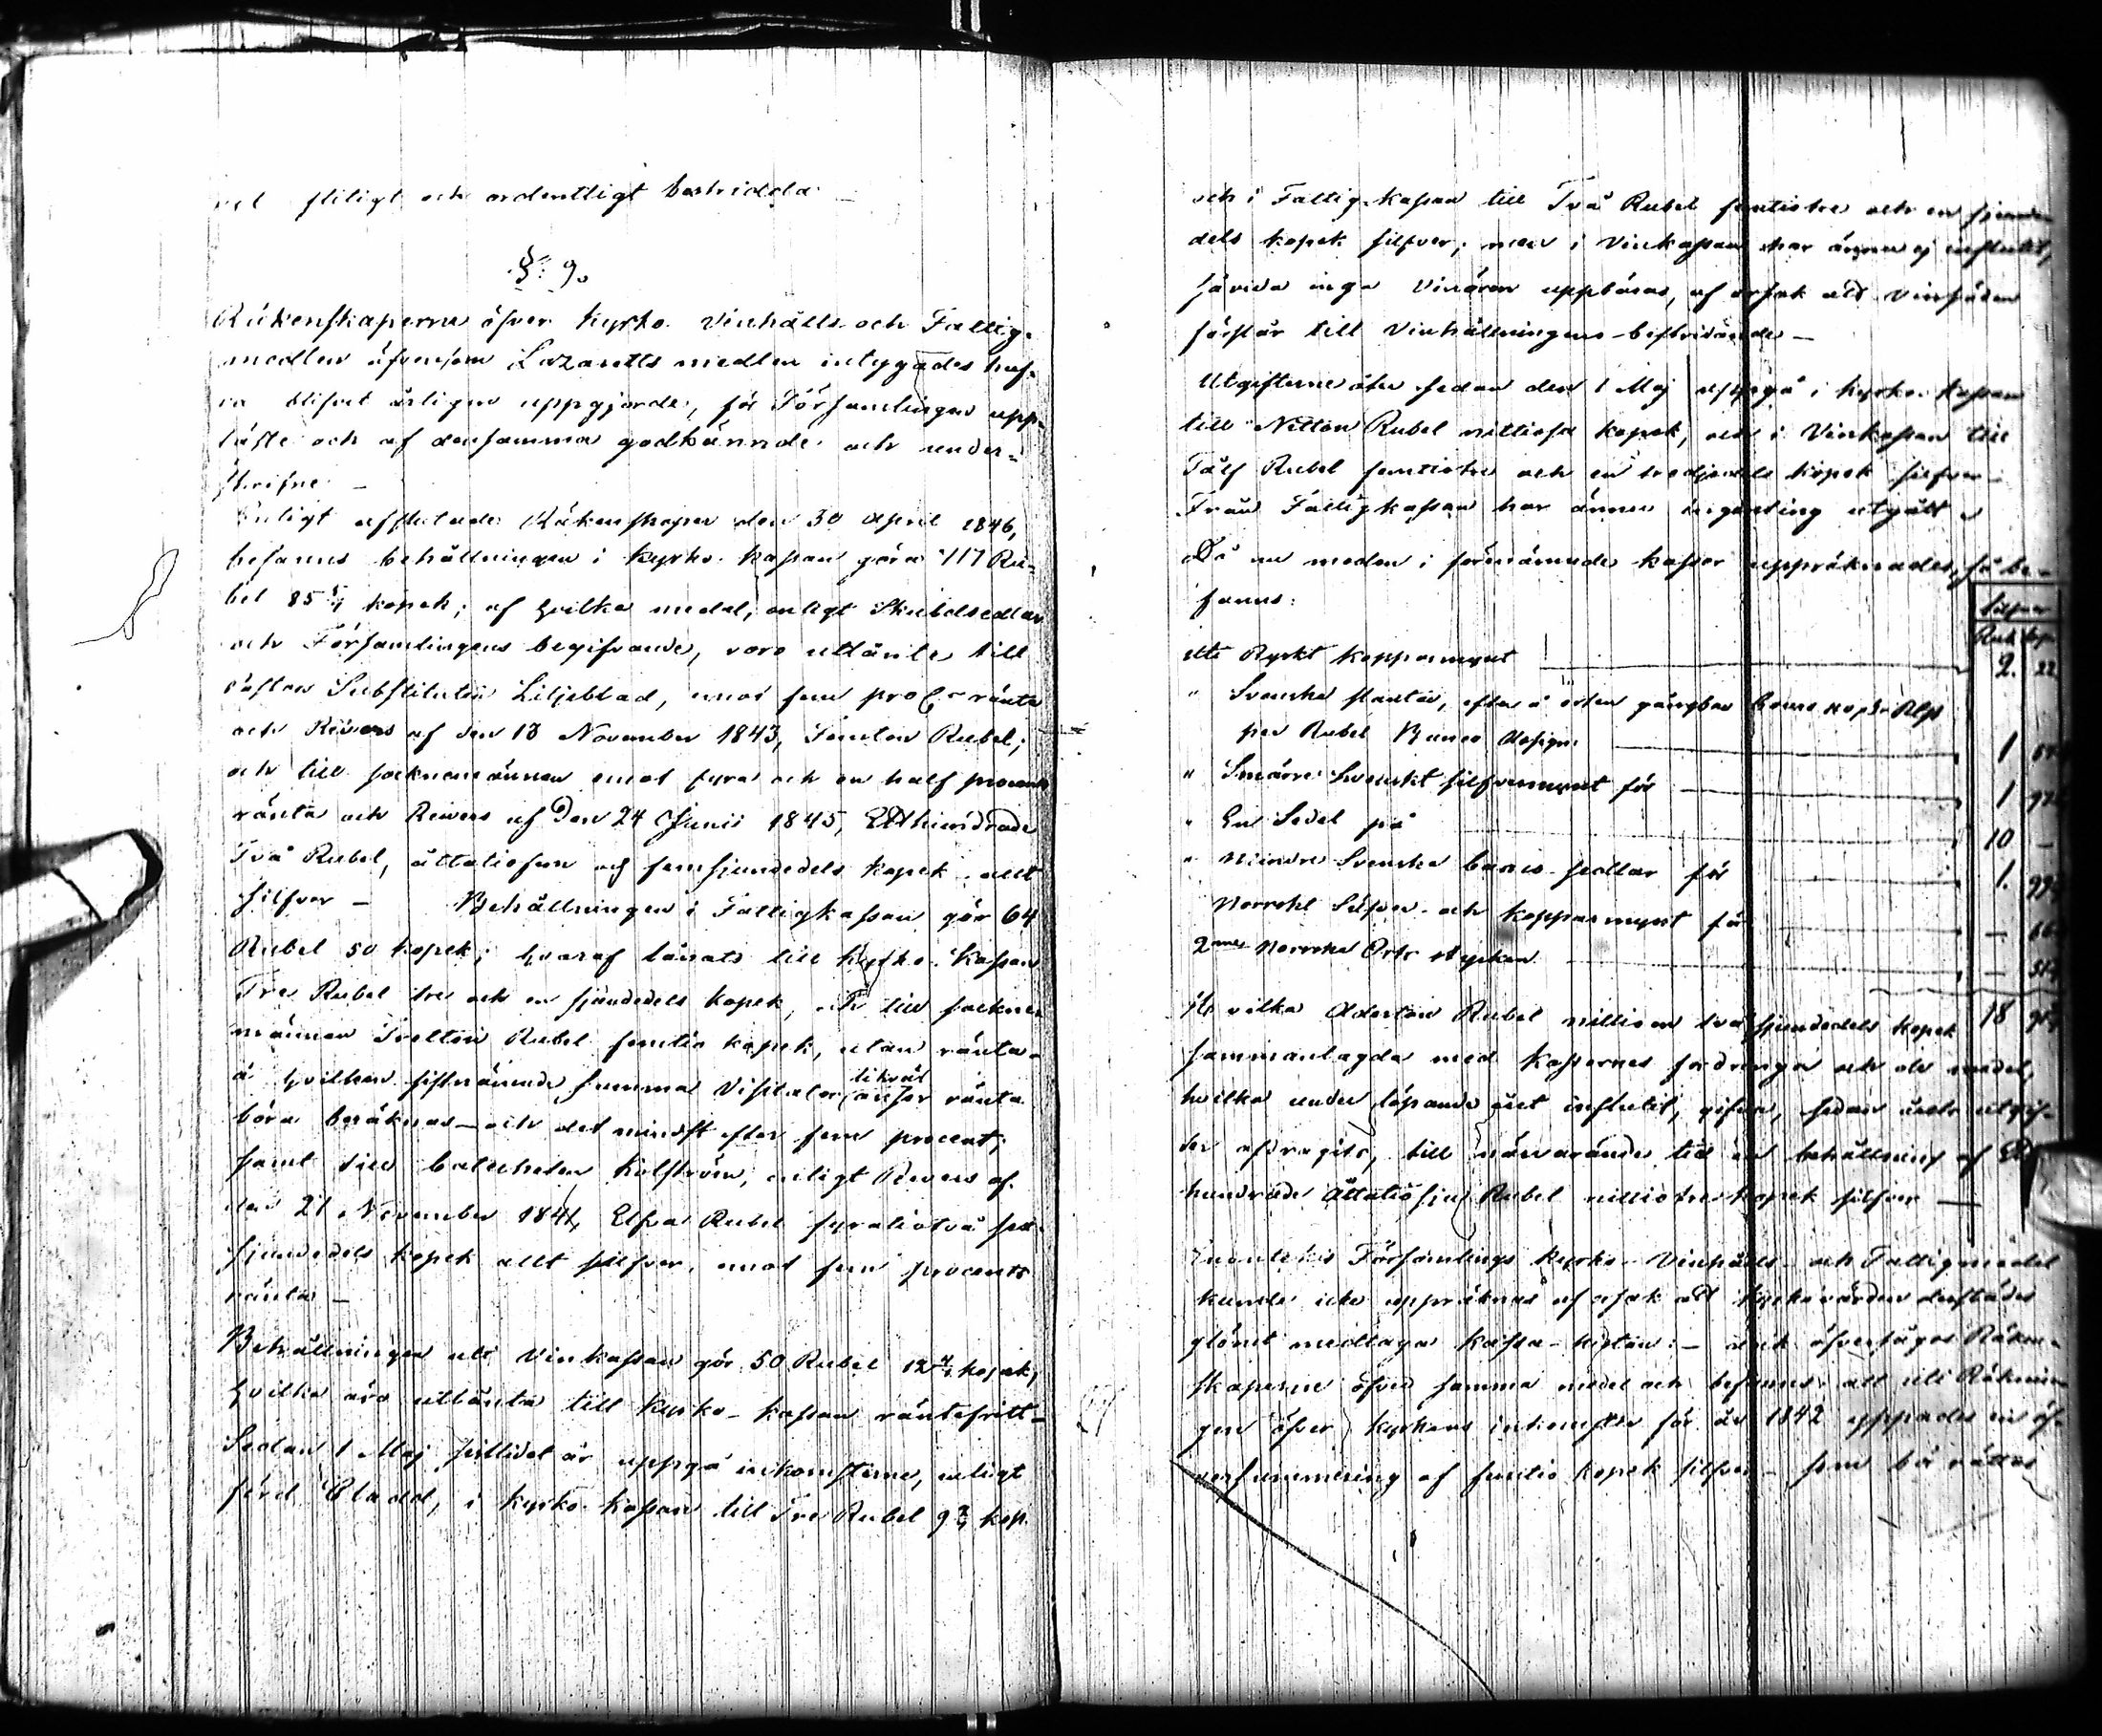 flitigt och ordentligt bestridda
§: 9.
Räkenskaperne öfver Kyrko- Vinhålls- och Fattig-
medlen äfvensom Lazaretts medlen intygades haf-
va blifvit årligen uppgjorde, för Församlingen upp-
läste och af densamma godkännde och under-
skrifne. —
Enligt afslutade Räkenskaper den 30 April 1846,
befanns behållningen i Kyrko-kassan göra 117 Ru-
bel 85 5/7 kopek; af hvilka medel, enligt Skuldsedlar
och Församlingens begifvande, voro utlånte till
Substituten Liljeblad, emot fem proC:t ränta
och Revers af den 18 November 1843, Femton Rubel;
och till socknemännen emot fyra och en half procents
ränta och Revers af den 24 Junii 1845, Etthundrade
Två Rubel, åttatiofem och femsjundedels kopek allt
silfver — Behållningen i Fattigkassan gör 64
Rubel 50 kopek; hvaraf lånats till Kyrko-Kassan
Tre Rubel tre och en sjundedels kopek, och till sockne-
männen Tretton Rubel femtio kopek, utan ränta-
å hvilken sistnämnde summa Visitator likväl anser ränta
böra beräknas — och det minst efter fem procent;
samt till Catecheten Kolström, enligt Revers af
den 21 November 1841, Elfva Rubel fyratiotvå sex
sjundedels kopek allt silfver, emot fem procents
ränta —
Behållningen uti Vinkassan gör 50 Rubel 12 4/7 kopek,
hvilka äro utlånta till Kyrko-kassan räntefritt —
Sedan 1 Maj sistlidet år uppgå inkomsterne, enligt
förd Cladd, i Kyrko-kassan till Tre Rubel 9 2/7 kop.
och i Fattig-kassan till Två Rubel femtiotre och en sjunde-
dels kopek silfver; men i Vinkassan har ännu ej influtit,
såvida inga Vinören uppbäras, af orsak att vinsäden
förslår till Vinhållningens bestridande —
Utgifterne åter sedan den 1 Maj uppgå i Kyrko-kassan
till Nitton Rubel nittiosex kopek, och i Vinkassan till
Tolf Rubel femtiotre och en tredjedels kopek silfver.
Från Fattigkassan har ännu ingenting utgått.
Då nu medlen i förenämnde kassor uppräknades, så be-
fanns:
Silfver
Rub. kop.
uti Ryskt kopparmynt 2. 22
" Svenska slantar, efter å orten gångbar
per Rubel Banco Assign. 1
" Smärre Svenskt silfvermynt för 1
" En Sedel på 10 —
" Mindre Svenska banco-sedlar för 1.
Norrskt Silfver- och kopparmynt för —
2ne Norrska Orts stycken —
Hvilka Aderton Rubel nittioen två sjundedels kopek 18
sammanlagda med kassornes fordringar och de medel,
hvilka under löpande året influtit, gifva, sedan årets utgif-
ter afdragits, till närvarande tid en behållning af Ett
hundrade åttatiosju Rubel nittiotre kopek silfver —
Enontekis Församlings kyrko- Vinhålls- och Fattigmedel
kunde icke uppräknas af orsak att Kyrkovärden
glömt medtaga kassa-kistan: — dock öfversågos Räken-
skaperne öfver samma medel och befanns att uti Räknin-
gen öfver kyrkans inkomster för år 1842 uppades en öf-
versummering af femtio kopek silfver — som bör rättas